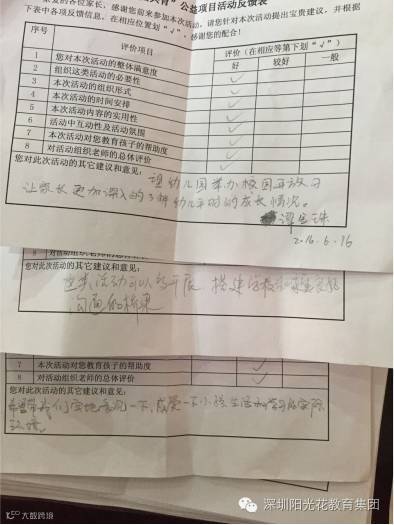 亲爱的各位家长，感谢您前来参加本次活动，请您针对本次活动提出宝贵建议，并根据
下表中各项反馈信息，在相应位置划“√”，感谢您的配合！
序号 评价项目 评价（在相应等下划“√”）
好 较好 一般
1 您对本次活动的整体满意度 √
2 组织这类活动的必要性 √
3 本次活动的组织形式 √
4 本次活动的时间安排 √
5 本次活动内容的实用性 √
6 活动中互动性及活动氛围 √
7 本次活动对您教育孩子的帮助度 √
8 对活动组织老师的总体评价 √
您对此次活动的其它建议和意见：
望幼儿园举办校园开放日
让家长更加深入的了解幼儿平时的成长情况。
2016.6.16
8 对活动组织老师的总体评价
您对此次活动的其它建议和意见：
沟通的桥梁
7 本次活动对您教育孩子的帮助度 √
8 对活动组织老师的总体评价 √
您对此次活动的其它建议和意见：
大数跨境
深圳阳光花教育集团